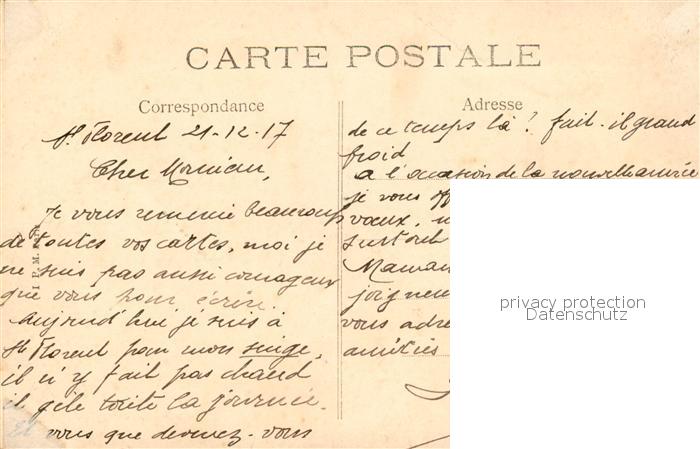 CARTE POSTALE
Correspondance
St Florent 21-12-17
Cher Monsieur,
Je vous remercie beaucoup
de toutes vos cartes, moi je
ne suis pas aussi courageux
que vous pour écrire.
Aujourd'hui je suis à
St Florent pour mon singe,
il n'y fait pas chaud
il gèle toute la journée.
Et vous que devenez-vous
Adresse
de ce temps là? fait-il grand
froid
A l'occasion de la nouvelle année
je vous
vœux,
surtout
Maman
joignen
vous adre
amitiés
I P. M.
privacy protection
Datenschutz